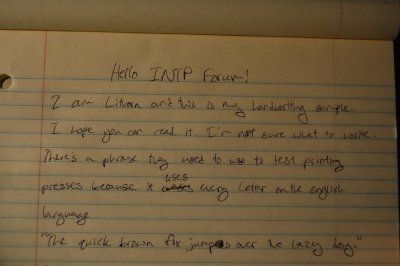 Hello INTP Forum!
I am and this is my handwriting sample.
I hope you can read it. I'm not sure what to write.
There's a phrase they used to use to test printing
presses because it uses every letter on the english
language
"The quick brown fox jumps over the lazey dog."